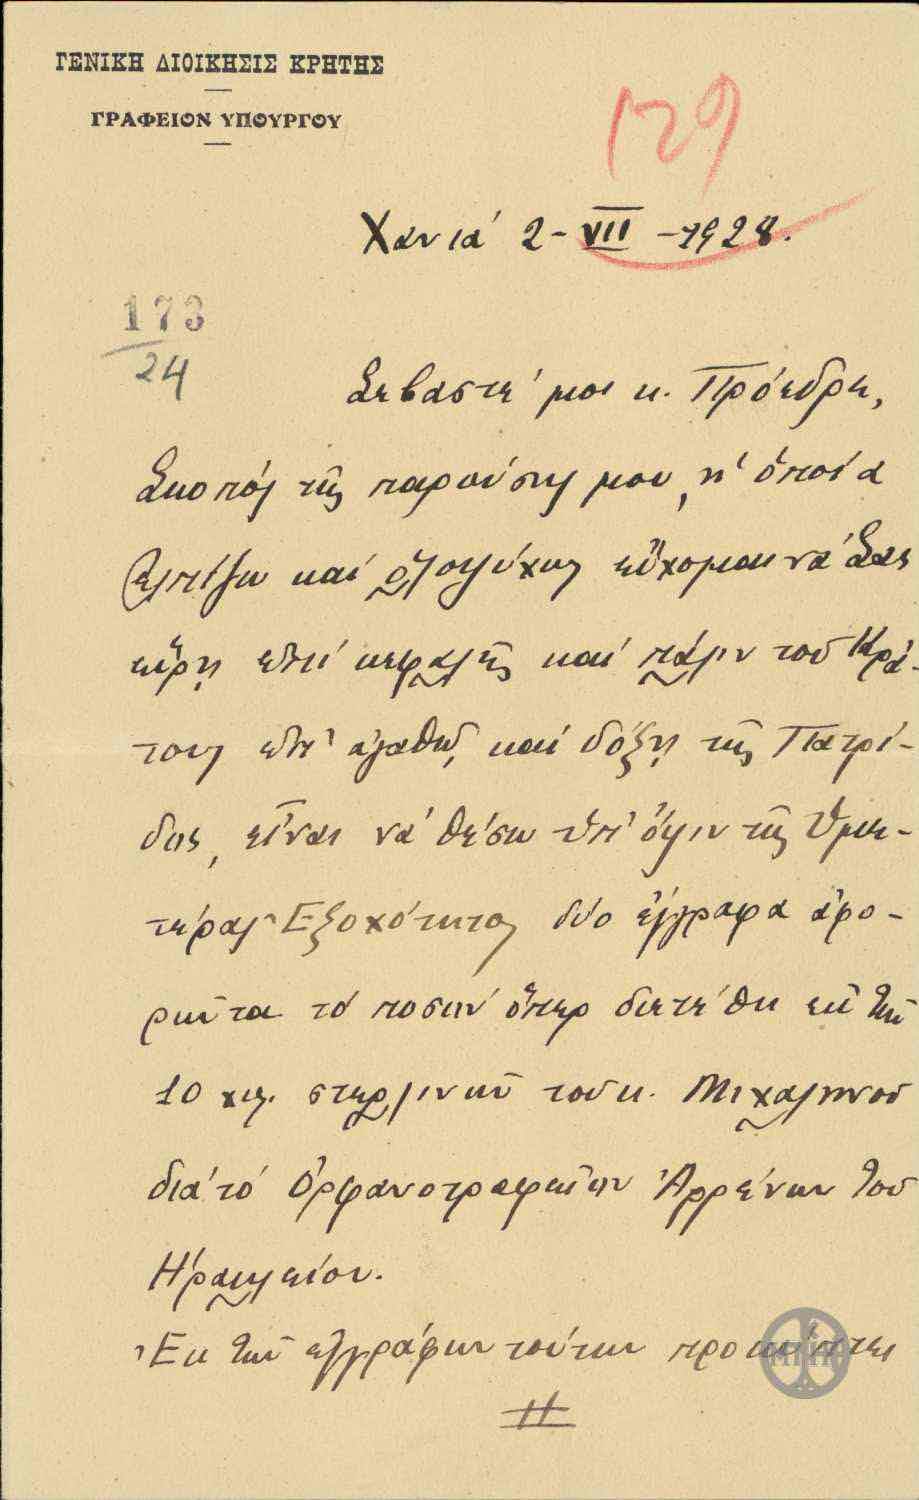 ΓΕΝΙΚΗ ΔΙΟΙΚΗΣΙΣ ΚΡΗΤΗΣ
ΓΡΑΦΕΙΟΝ ΥΠΟΥΡΓΟΥ
129
Χανιά 2-VII-1928.
173
24
Σεβαστέ μοι κ. Πρόεδρε,
Σκοπός τῆς παρούσης μου, ἡ ὁποία
ἐλπίζω καὶ ὁλοψύχως εὔχομαι νὰ Σᾶς
εὕρῃ ἐπὶ κεφαλῆς καὶ πάλιν τοῦ Κρά-
τους ἐπ' ἀγαθῷ καὶ δόξῃ τῆς Πατρί-
δος, εἶναι νὰ θέσω ὑπ' ὄψιν τῆς Ὑμε-
τέρας Ἐξοχότητος δύο ἔγγραφα ἀφο-
ρῶντα τὸ ποσὸν ὅπερ διετέθη ἐκ τῶν
10 χιλ. στερλινῶν τοῦ κ. Μιχαληνοῦ
διὰ τὸ Ὀρφανοτροφεῖον Ἀρρένων τοῦ
Ἡρακλείου.
Ἐκ τῶν ἐγγράφων τούτων προκύπτει